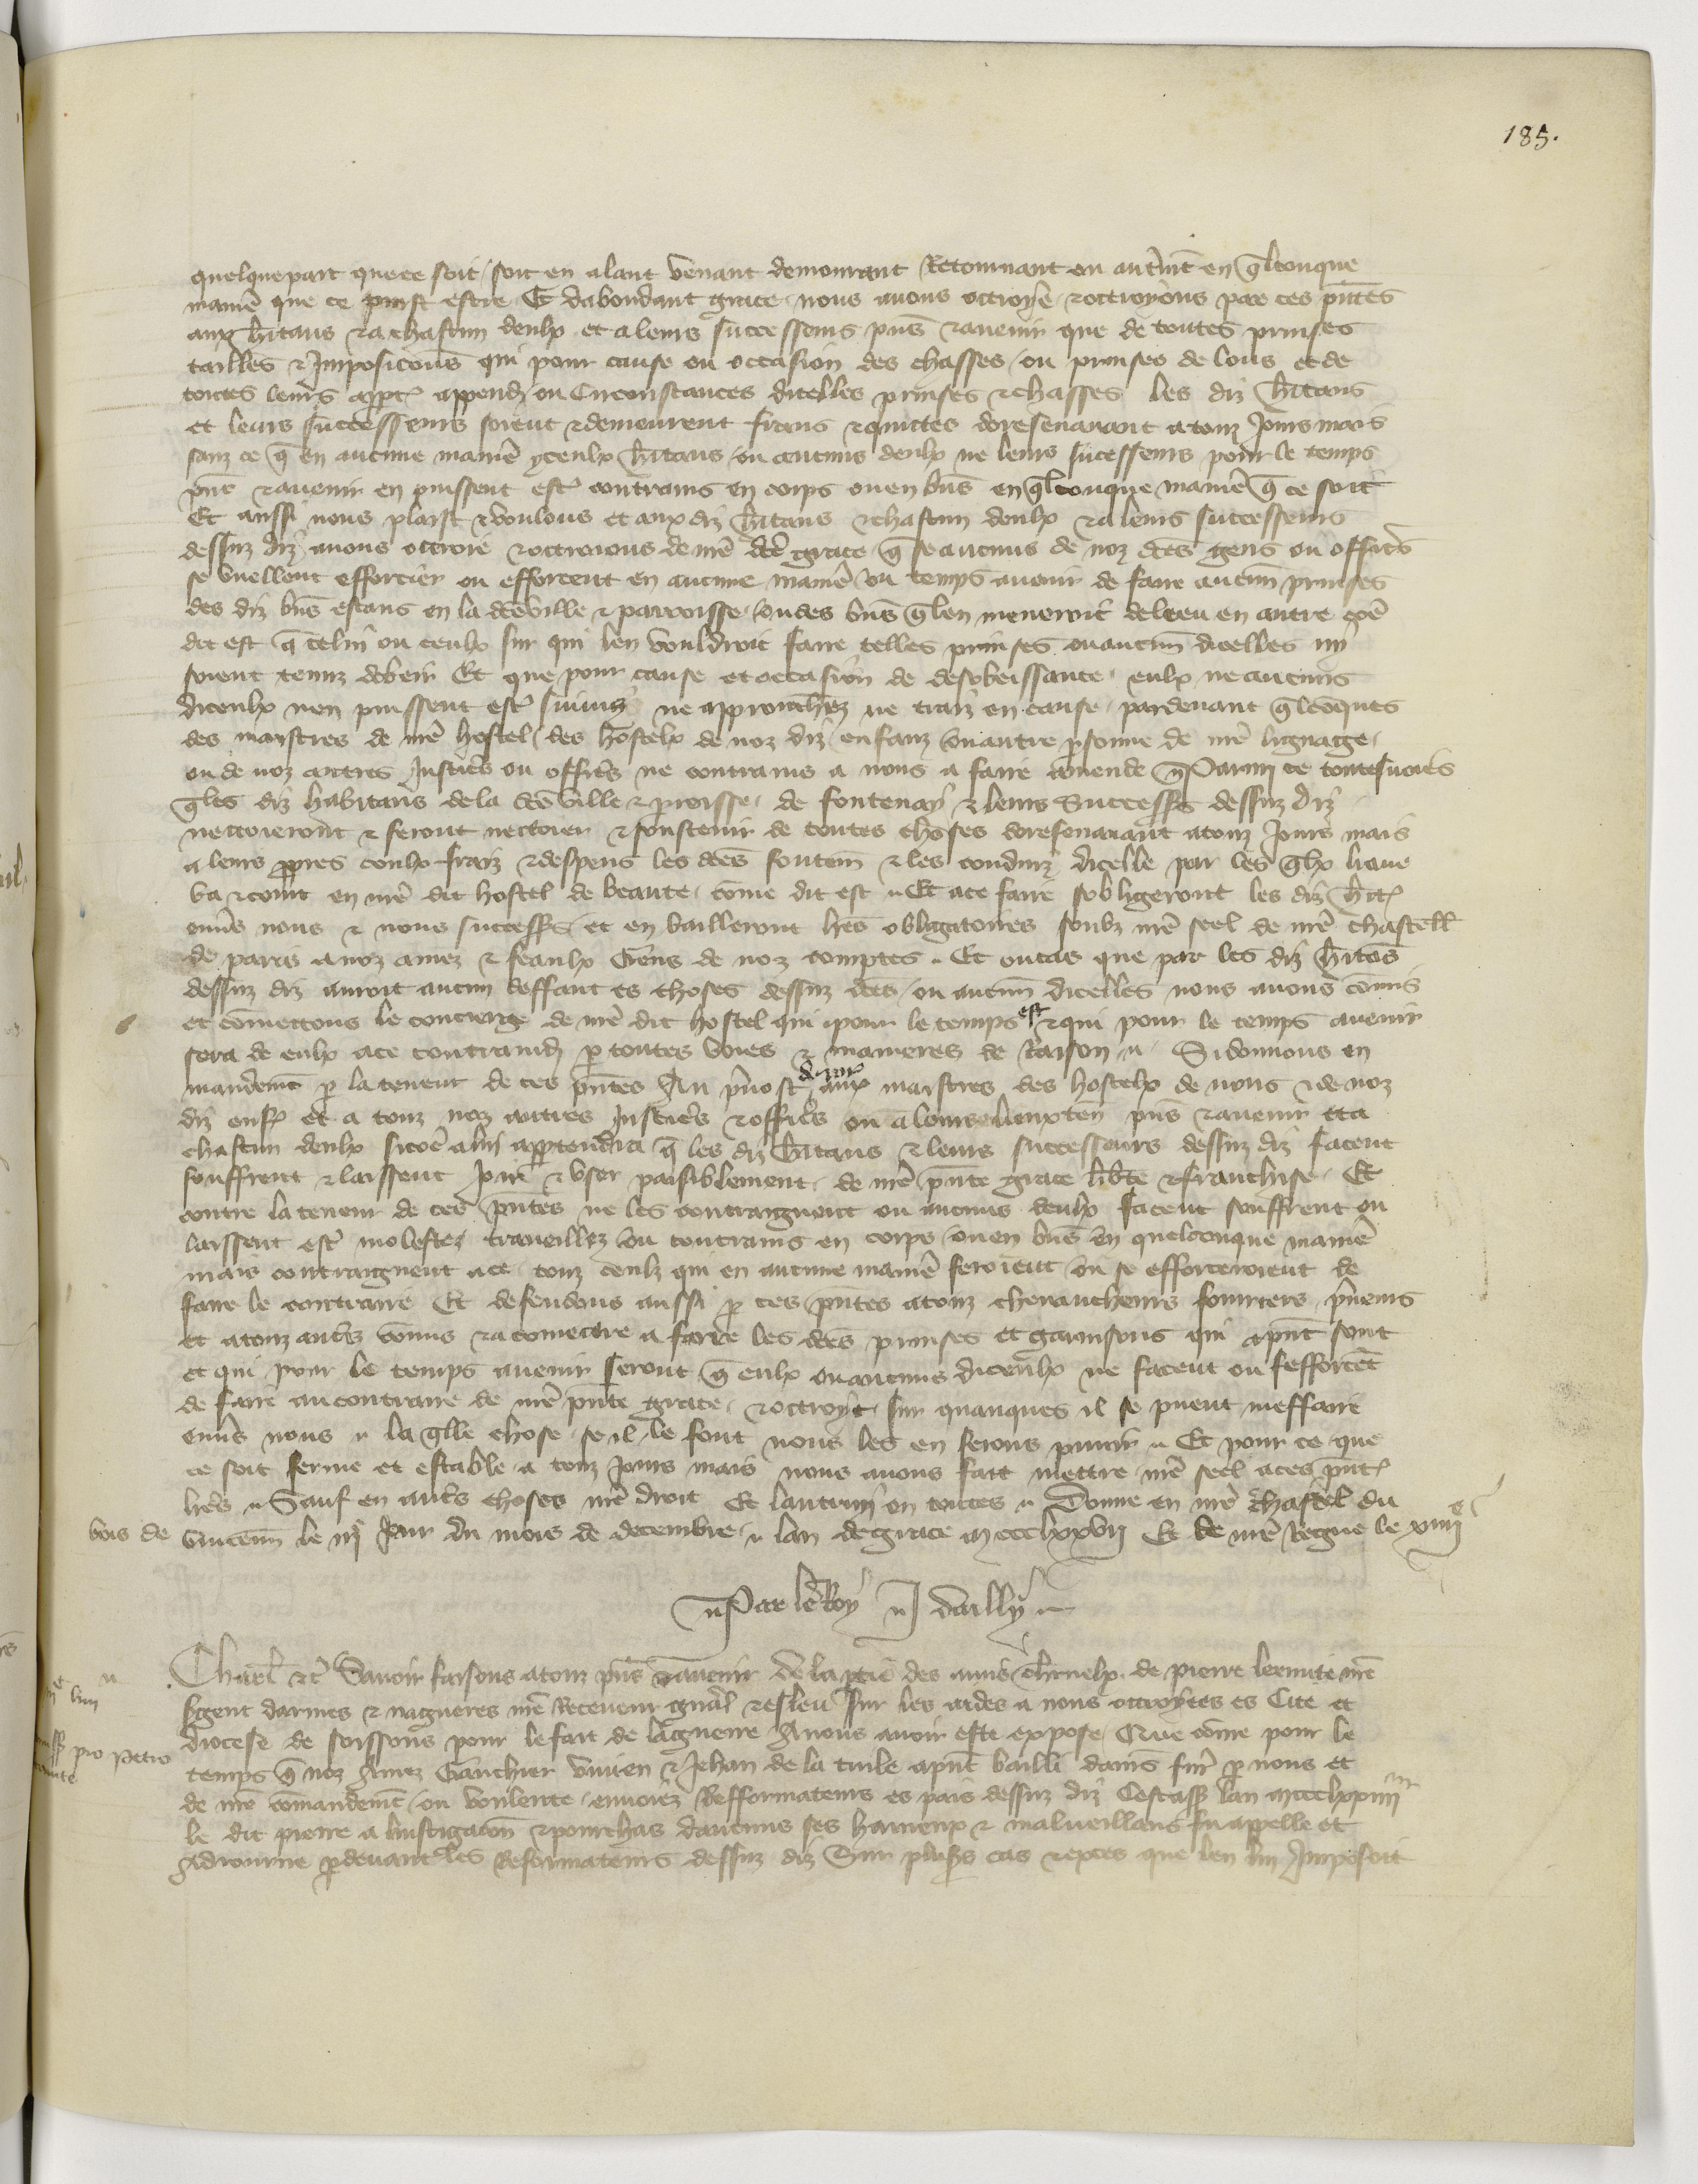 185.
quelque part que ce soit / soit en alant venant demourant Retournant ou autrēmt en qͥlconque
maniē que ce puist estre Et dabondant grace nous avons octroye & octroyons par ces pn̄tes
aux hītans & a chascun deulx et a leurs successeurs pn̄s & avenir que de toutes prinses
tailles & Imposicōns qui pour cause ou occasion des chasses / ou prinses de lous et de
toutes leurs appt append ou Circonstances dicelles prinses & chasses les diz hītans
et leurs successeurs soient & demeurent frans & quittes doresenavant a touz Jours mais
sanz ce q̄ en aucune maniē yceulx hītans / ou aucuns deulx ne leurs sucesseurs pour le temps
pn̄t & avenir en puissent estre contrains en corps ou en biēs en qͥlconque maniē q̄ ce soit
Et aussi nous plaist & voulons et aux diz hītans & chascun deulx & a leurs successeurs
dessuz diz avons octroie & octroions de nr̄e dc̄e grace q̄ se aucuns de noz dc̄es gens ou officiers
se vuellent efforcier ou efforcent en aucune maniē ou temps avenir de faire aucun̄ prinses
des diz biēs estans en la dc̄e ville & parroisse / ou des biēs q̄ len menroit de lieu en autre cōe
dit est q̄ celui ou ceulx sur qui len vouldroit faire telles prinses ou aucun̄ dicelles ny
soient tenuz dobeir Et que pour cause et occasion de desobeissance eulx ne aucuns
diceulx nen puissent estre suiuis ne approuchez ne traiz en cause pardevant qͥlcōques
des maistres de nr̄e hostel / des hostelx de noz diz enfanz ou autre psonne de nr̄e lignage
ou de noz autres Justiciers ou officiers ne contrains a nous a faire amende Parmi ce toutesvoies
q̄ les diz habitans de la dc̄e ville & proisse de fontenay & leurs Successrs dessuz diz
nectoieront & feront nectoier & soustenir de toutes choses doresenavant a touz Jours mais
a leurs ppres coulx fraiz & despens les dc̄es fontein̄ & les conduiz dicelle par les qͥlx lieaue
va & court en nr̄e dit hostel de beaute cōme dit est Et a ce faire sobligeront les diz hīt
envers nous & nous successrs et en bailleront lr̄es obligatoires soubz nr̄e seel de nr̄e chastell
de paris a noz amez & feaulx Gens de noz comptes Et ou cas que par les diz hītās
dessuz diz auroit aucun deffaut es choses dessuz dc̄es / ou aucun̄ dicelles nous avons cōmis
et cōmettons le concierge de nr̄e dit hostel qui pour le temps est & qui pour le temps avenir
sera de eulx a ce contraind p toutes voies & manieres de Raison Si donnons en
mandemt p la teneur de ces pn̄tes Au pr̄vost de paris aux maistres des hostelx de nous & de noz
diz enfz et a touz noz autres Justiciers & officiers ou a leurs lieuxten̄ pn̄s & avenir et a
chascun deulx sicōe a lui apptendra q̄ les diz hītans & leurs successeurs dessuz diz facent
souffrent & laissent Joir & user paisiblement de nr̄e pn̄te grace libte & franchise Et
contre la teneur de ces pn̄tes ne les contraignent ou aucuns deulx facent souffrent ou
laissent estre molestez travaillez ou contrains en corps ou en biēs en quelconque maniē
mais contraignent a ce touz ceulz qui en aucune maniē feroient ou se efforceroient de
faire le contraire Et defendons aussi p ces pn̄tes a touz chevaucheurs fourriers preneurs
et a touz autrs cōmis & a cōmectre a faire les dc̄es prinses et garnisons qui apn̄t sont
et qui pour le temps avenir seront q̄ eulx ou aucuns diceulx ne facent ou sefforcēt
de faire au contraire de nr̄e pn̄te grace & octroyt sur quanques il se puent meffaire
envrs nous la qͥlle chose se il le font nous les en ferons punir Et pour ce que
ce soit ferme et estable a touz Jours mais nous avons fait mettre nr̄e seel a ces pn̄t
lr̄es Sauf en autrs choses nr̄e droit Et lautruy en toutes Donne en nr̄e chastel du
bois de vincenn̄ le iij Jour du mois de decembre lan de grace m ccclxxvij Et de nr̄e Regne le xiiij e
Par le Roy J dailly
Charl &c Savoir faisons a touz pn̄s & avenir De la ptie des amis charnelx de pierre lermite nr̄e
sgent darmes & nagueres nr̄e Receveur gnāl & esleu sur les aides a nous octroyees es Cite et
diocese de soissons pour le fait de la guerre A nous avoir este expose Que cōme pour le
temps q̄ noz Amez Gauchier vivien & Jehan de la tuile apn̄t bailli damis fur p nous et
de nr̄e cōmandemt ou voulente envoiez Refformateurs es pais dessuz diz Cestass lan mccclxxiiij
le dit pierre a linstigacōn & pourchas daucuns ses haineux & malveillans fu appelle et
Adiourne pdevant les Reformateurs dessuz diz Sur plusrs cas & exces que len lui Imposoit
pro petro